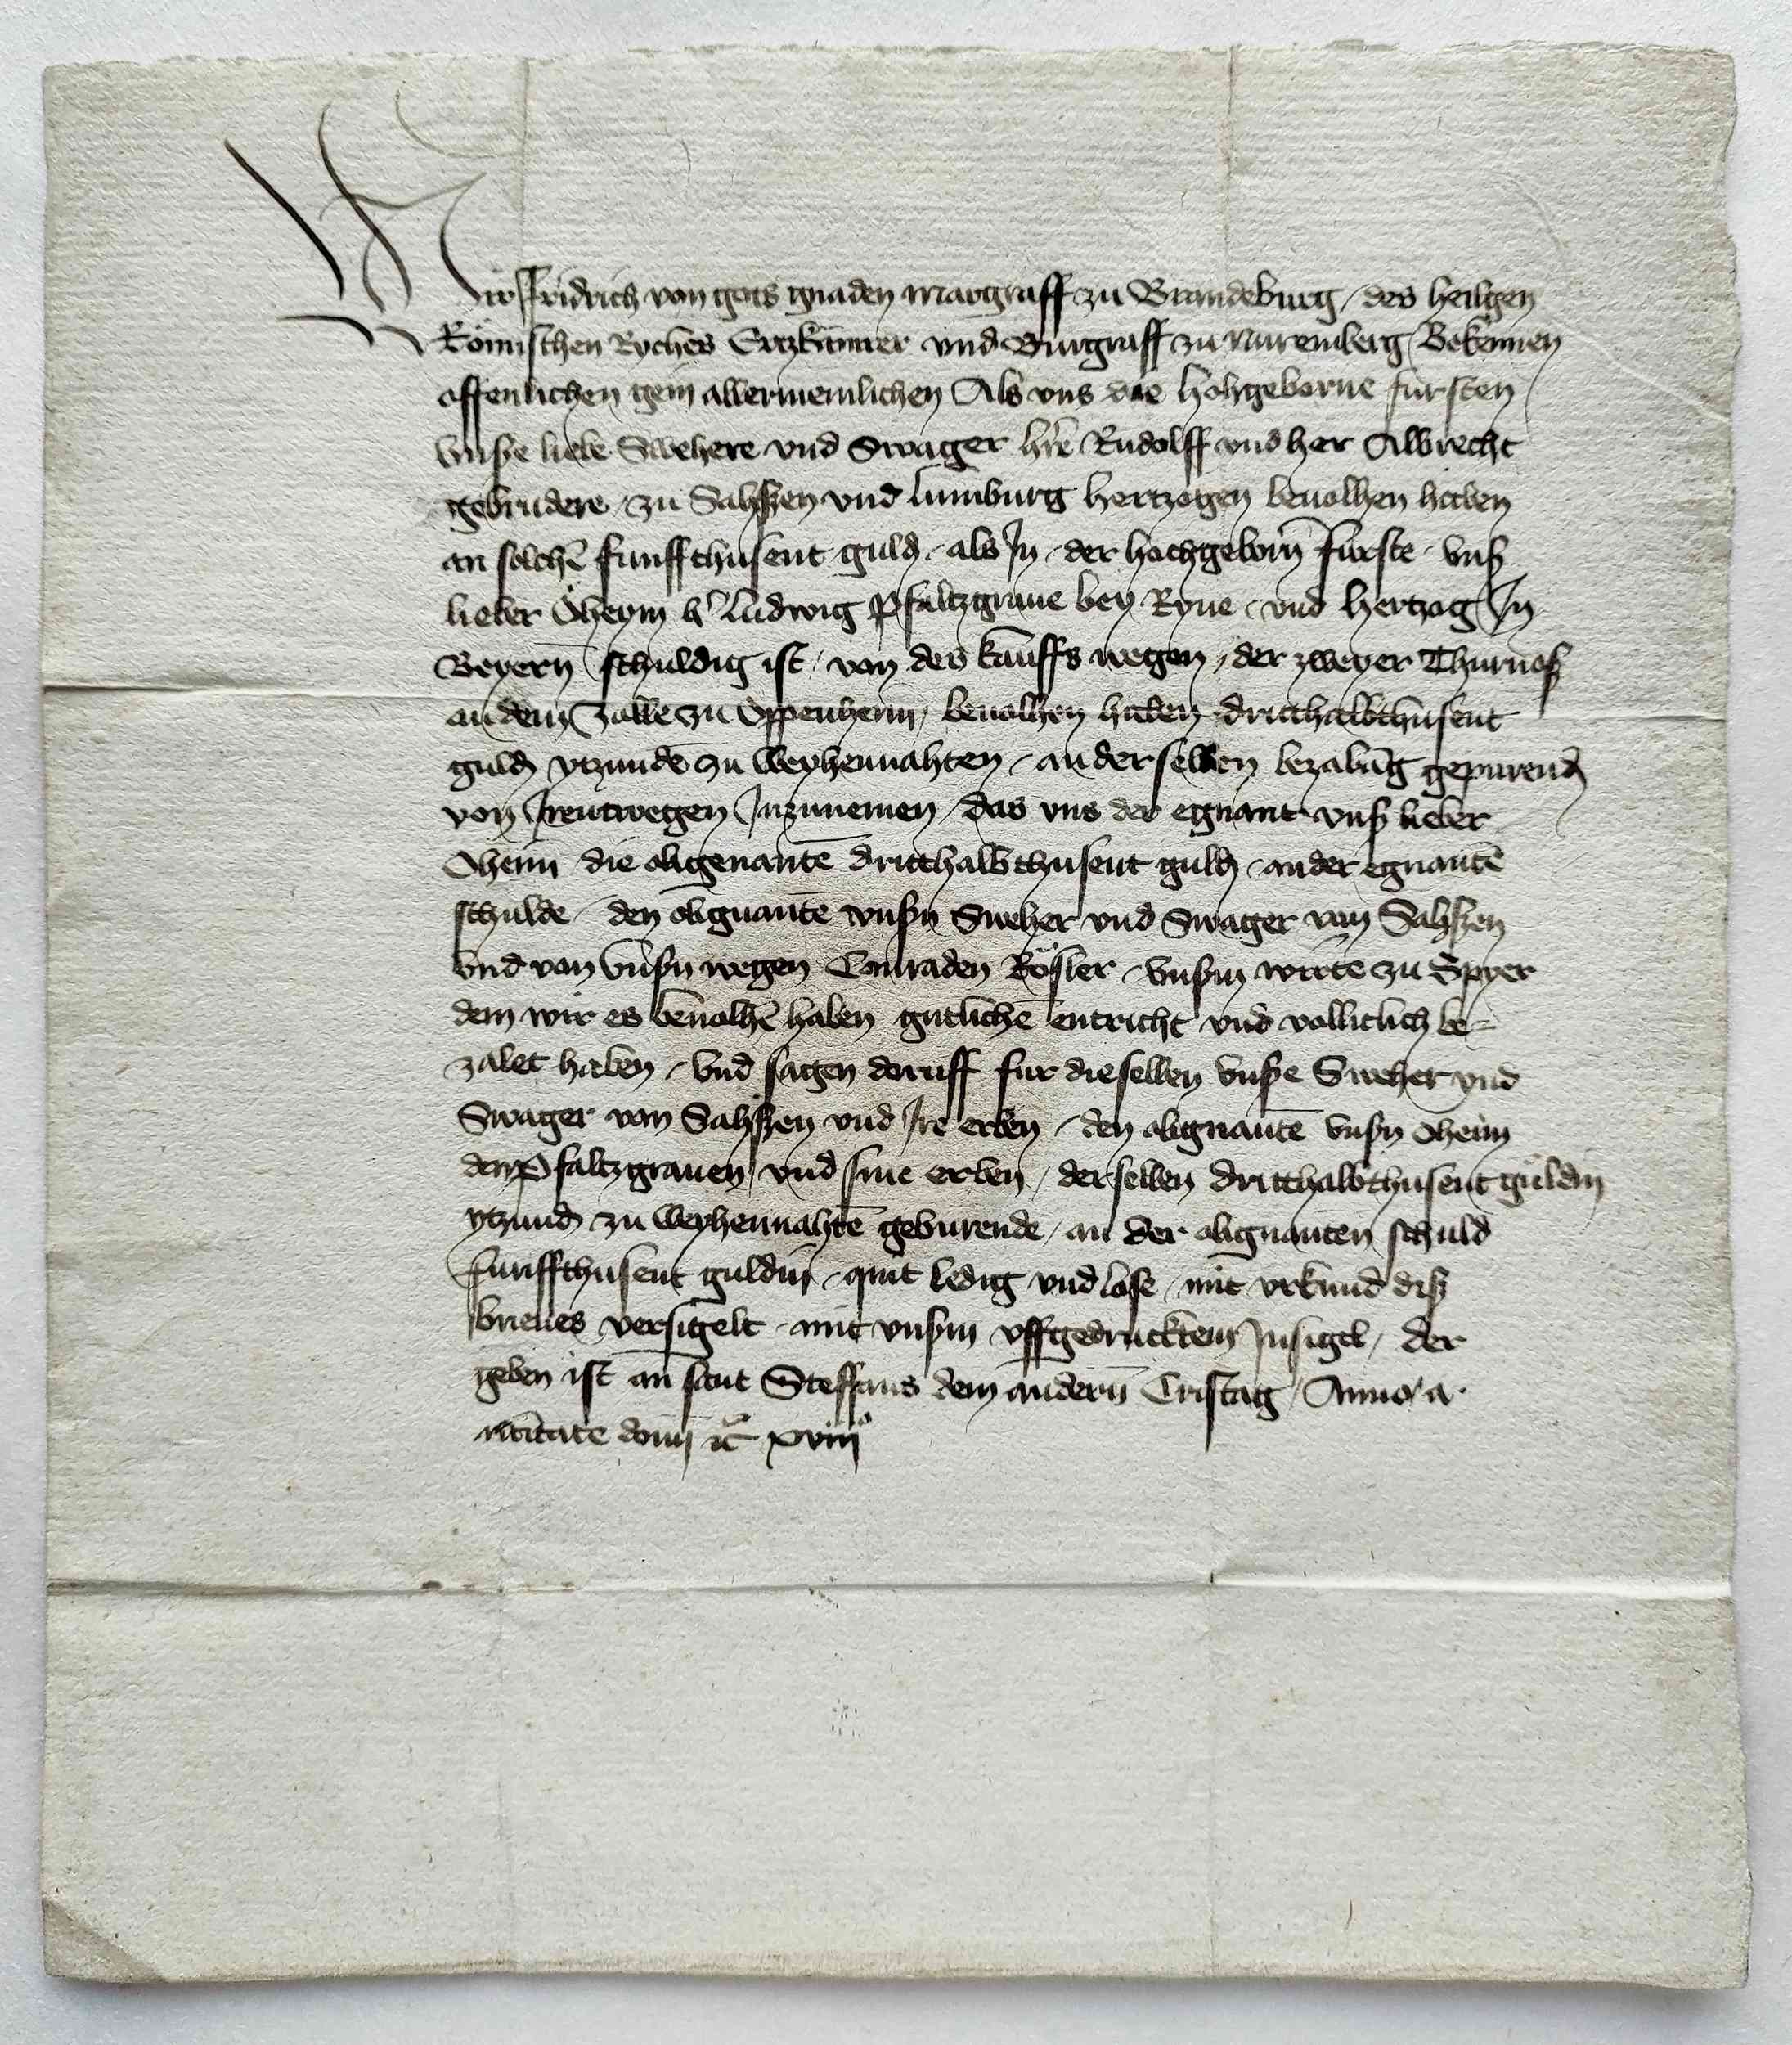 Wir Fridrich von gots gnaden Marggraff zu Brandeburg / des heilgen
Römischen Ryches Ertzkamrer vnd Burgraff zu Nuremberg / Bekennen
offenlichen gein allermeinlichen Als vns die hohgeborne fursten
vnsße liebe Swehere vnd Swager h're Rudolff vnd her Albrecht
gebrudere / zu Sahssen vnd Lunburg hertzogen beuolhen haben
an solchē funffthusent guld / als Jn / der hochgeborn̄ furste / vnß
lieber Öheym h' Ludwig Pfaltzgraue bey Ryne / vnd hertzog Jn
Beyern̄ schuldig ist / von des kauffs wegen / der zweyer Thurnoß
an dem Zolle zu Oppenheim / beuolhen haben dritthalbthusent
guld ytzundē zu Weyhennahten / an derselben bezalūg gepurend
von Jrentwegen Jnzunemen / das vns der egnant vnß lieber
Oheim die obgenantē dritthalbthusent guld / an der egnantē
schulde / den obgnantē vnßn Sweher vnd Swager von Sahssen
vnd von vnßn wegen Conraden Rösler / vnßm wirte zu Spyer
dem wir es beuolhē haben gutlichē entricht vnd volliclich be=
zalet haben / vnd sagen doruff fur dieselben vnße Sweher vnd
Swager von Sahssen vnd Jre erben / den obgnantē vnßn Oheim
den Pfaltzgrauen vnd sine erben / derselben dritthalbthusent guldin
ytzund zu Weyhennahtē geburende / an der obgnanten schuld
funffthusent guldin / quit ledig vnd lose / mit vrkund diß
brieues versigelt / mit vnßm vffgedrucktem Jnsigel / der
geben ist an sant Steffans dem andern̄ Cristag / Anno a
nitītate dom̄ rc̄ xviii°